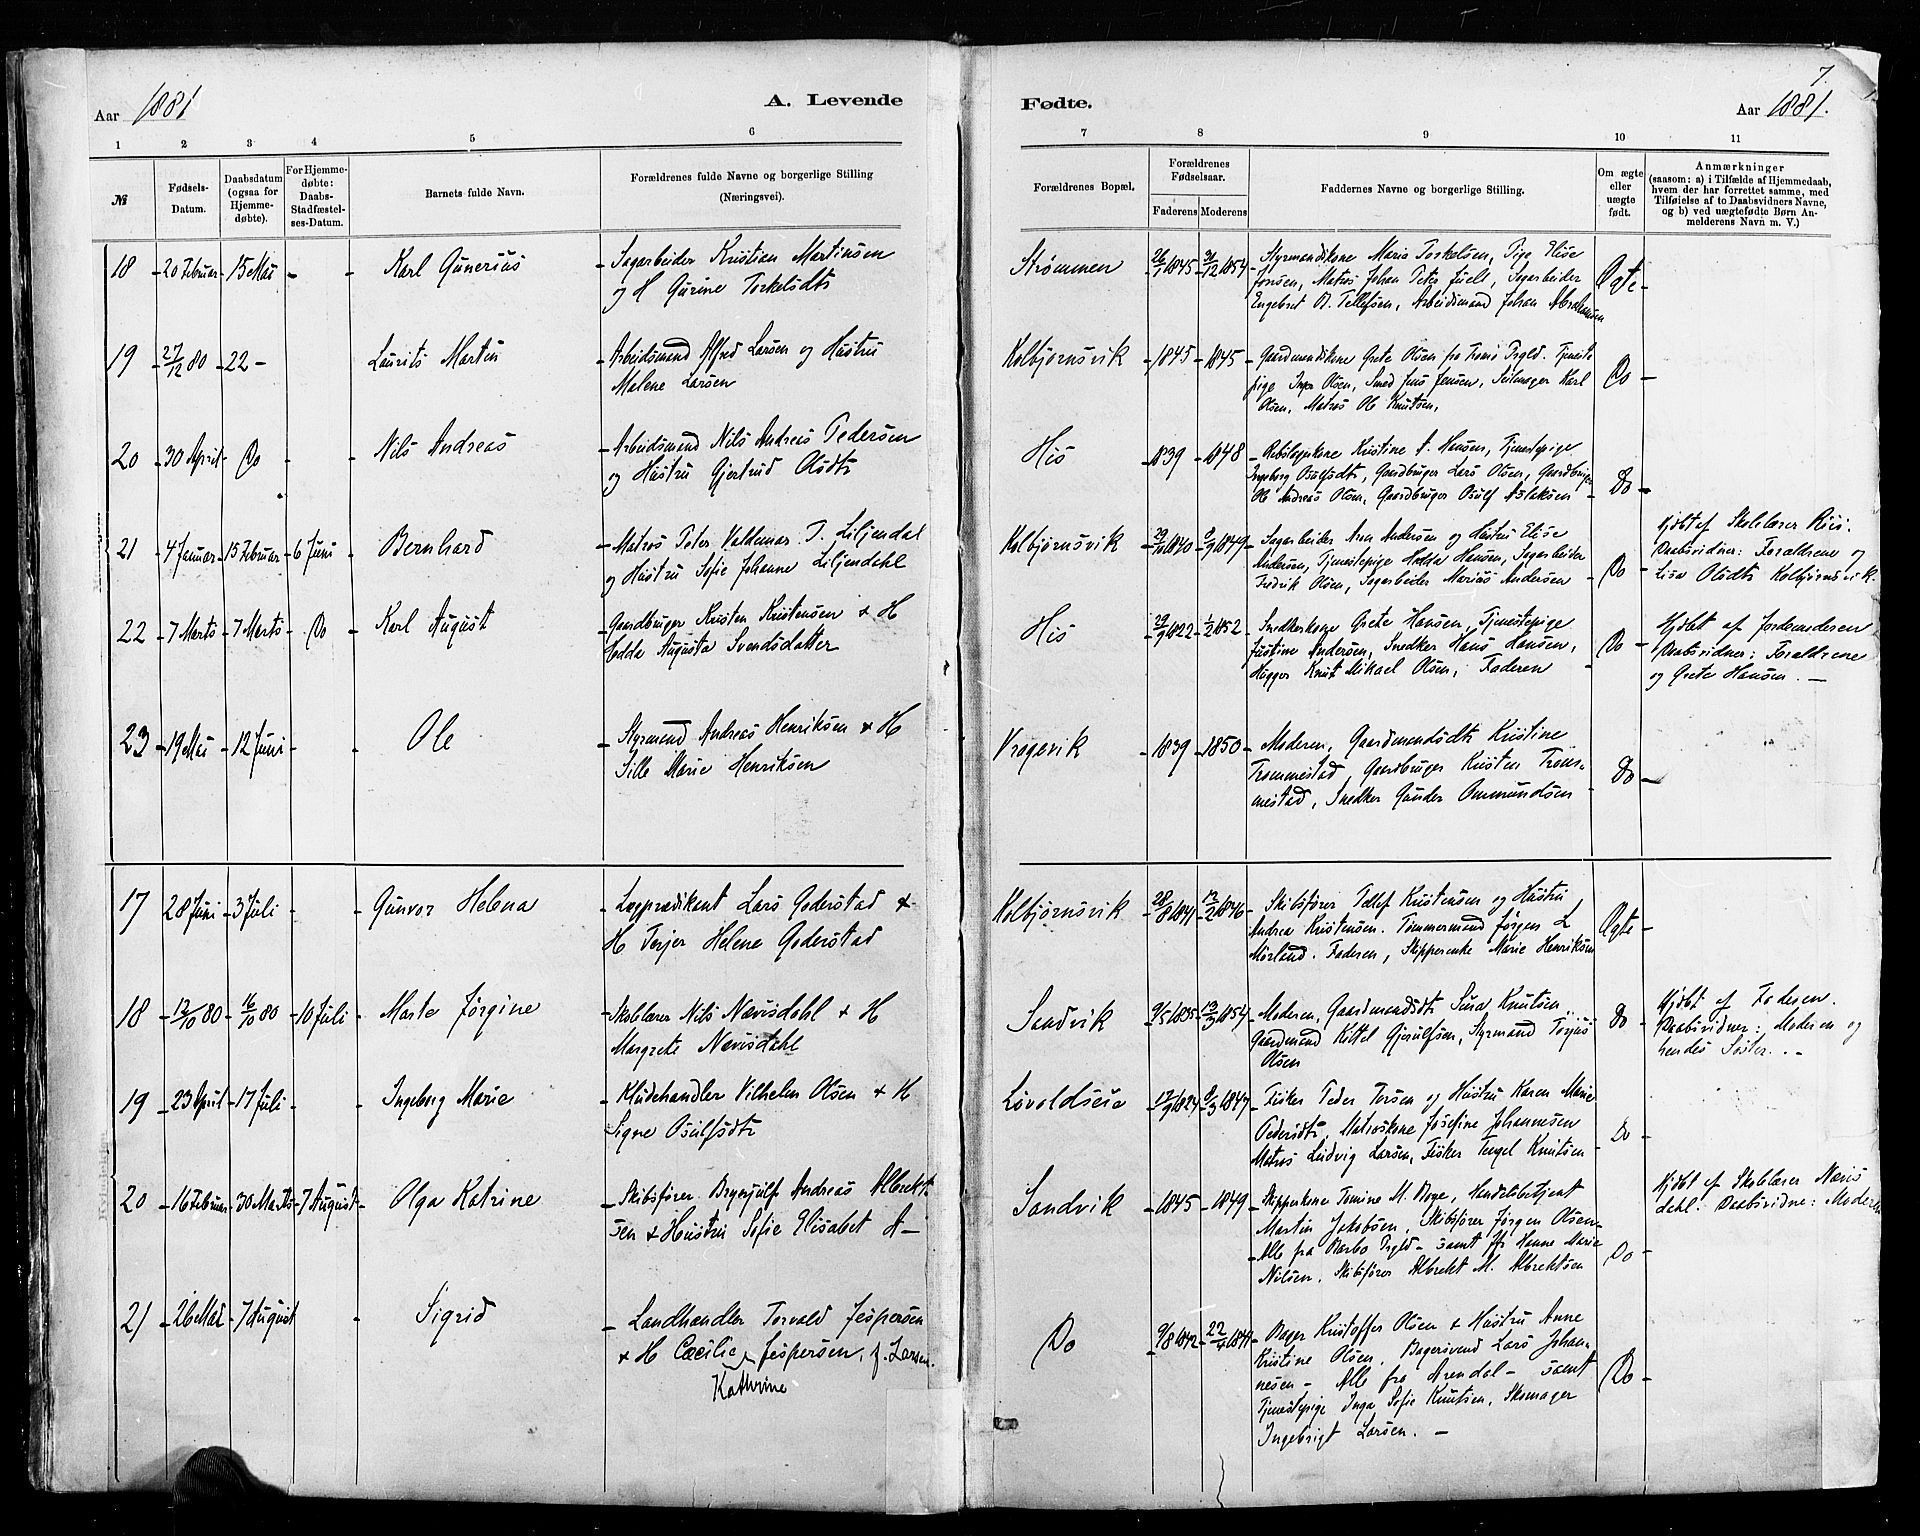 Aar 1881 A. Levende
1 2 3 4 5 6
№ Fødsels-Datum. Daabsdatum (ogsaa for Hjemmedøbte). For Hjemmedøbte: Daabs-Stadfæstelses-Datum. Barnets fulde Navn. Forældrenes fulde Navne og borgerlige Stilling (Næringsvei).
18 - 20 Februar - 15 Mai - - Karl Gunerius - Sagarbeider Kristian Martinsen
og H Gurine Torkelsdtr
19 - 27/12 80 - 22 - - Laurits Martin - Arbeidsmand Alfred Larsen og Hustru
Malene Larsen
20 - 30 April - Do - - Nils Andreas - Arbeidsmand Nils Andreas Pedersen
og Hustru Gjertrud Olsdtr
21 - 4 Januar - 15 Februar - 6 Juni - Bernhard - Matros Peter Valdemar P. Liljendal
og Hustru Sofie Johanne Liljendahl
22 - 7 Marts - 7 Marts - Do - Karl August - Gaardbruger Kristen Kristensen & H
Hedda Augusta Svendsdatter
23 - 19 Mai - 12 Juni - - Ole - Styrmand Andreas Henriksen & H
Sille Marie Henriksen
17 - 28 Juni - 3 Juli - - Gunvor Helena - Lægprædikant Lars Goderstad &
H Terjer Helene Goderstad
18 - 12/10 80 - 16/10 80 - 10 Juli - Marte Jørgine - Skolelærer Nils Nævisdahl & H
Margrete Nævisdahl
19 - 23 April - 17 Juli - - Ingeborg Marie - Kludehandler Vilhelm Olsen & H
Signe Osulfsdtr
20 - 16 Februar - 30 Marts - 7 August - Olga Katrine - Skibsfører Brynjulf Andreas Albrekt-
sen & Hustru Sofie Elisabet A-
21 - 26 Mai - 7 August - Sigrid - Landhandler Torvald Jespersen
& H Cæcilie Jespersen, f. Larsen.
Kathrine
7.
Fødte. Aar 1881.
7 8 9 10 11
Forældrenes Bopæl. Forældrenes Fødselsaar. Faderens Moderens Faddernes Navne og borgerlige Stilling. Om ægte eller uægte født. Anmærkninger
(saasom: a) i Tilfælde af Hjemmedaab,
hvem der har forrettet samme, med
Tilføielse af to Daabsvidners Navne,
og b) ved uægtefødte Børn Anmelderens Navn m. V.)
Strømmen - 26/1 1845 - /12 1854 - Styrmandskone Maria Torkelsen, Pige Elise
Jonsen, Matros Johan Peter Juell, Sagarbeider
Engebret B. Tellefsen, Arbeidsmand Johan Abrahamsen Ægte -
Kolbjørnsvik - 1845 - 1845 - Gaardmandskone Grete Olsen fra Tromø Prgld. Tjeneste
pige Olsen, Smed Jens Jensen, Seilmager Karl
Olsen, Matros Ole Knutsen, Do -
His - 1839 - 1848 - Kristine A. Hansen, Tjenestepige
Ingeborg Osulfsdtr, Gaardbruger Lars Olsen, Gaardbruger
Ole Andreas Olsen, Gaardbruger Osulf Aslaksen - Do -
Kolbjørnsvik - 1840 - 2/9 1849 - Sagarbeider Aren Andersen og Hustru Elise
Andersen, Tjenestepige Hedda Hansen, Sagarbeider
Fredrik Olsen, Sagarbeider Marius Andersen - Do -
Hjdbt af Skolelærer Riis.
Daabsvidner: Forældrene og
Lisa Olsdtr Kolbjørnsvik.
His - 29/9 1822 - 1/2 1852 - Snedkerkone Grete Hansen, Tjenestepige
Justine Andersen, Snedker Hans Hansen,
Hugger Knut Mikael Olsen, Faderen - Do -
Hjdbt af Jordemoderen
Daabsvidner: Forældrene
og Grete Hansen. -
Vragevik - 1839 - 1850 - Moderen, Gaardmandsdtr Kristine
Trommestad, Gaardbruger Kristen Trom-
mestad, Snedker Gunder Ommundsen Do -
Kolbjørnsvik - 28/8 1841 - 12/2 1846 - Skibsfører Tellef Kristensen og Hustru
Andrea Kristensen. Tømmermand Jørgen L
Mørland. Faderen, Skipperenke Marie Henriksen Ægte -
Sandvik - 9/5 1835 - 13/3 1854 - Moderen, Gaardmandsdtr Sina Knutsen
Gaardmand Kittel Gjerulfsen, Styrmand Torjus
Olsen Do -
Hjdbt af Faderen.
Daabsvidner: Moderen og
hendes Søster. -
Løvoldseie - 17/9 1824 - 2/3 1847 - Fisker Peder Torsen og Hustru Karen Marie
Pedersdtr, Matroskone Josefine Johannesen
Matros Ludvig Larsen, Fisker Tengel Knutsen Do -
Sandvik - 1845 - 1849 - Skipperkone Tomine M. Boye, Handelsbetjent
Martin Jakobsen, Skibsfører Jørgen Olsen -
- Alle fra Barbo Prgld - samt Hanne Marie
Nilsen, Skibsfører Albrekt M. Albrektsen Do -
Hjdbt af Skolelærer Nævis
dahl. Daabsvidne: Moderen
Do - 9/8 1842 - 22/4 - Bager Kristoffer Olsen & Hustru Anne
Kristine Olsen, Bagersvend Lars Johan-
nesen - Alle fra Arendal - samt
Tjenestepige Inga Sofie Knutsen, Skomager
Ingebrigt Larsen. - Do -